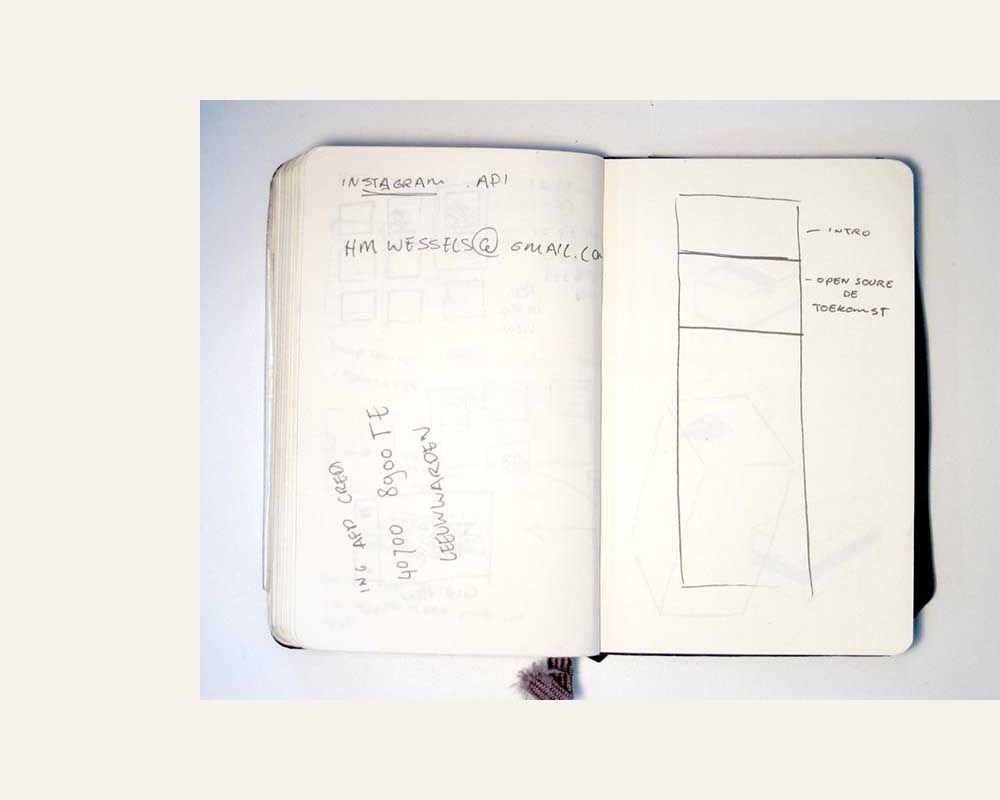 INSTAGRAM . API
HMWESSELS@GMAIL.CO
ING AFD CRED
40700 8900 TE
LEEUWWARDEN
- INTRO
- OPEN SOURE
DE
TOEKOMST